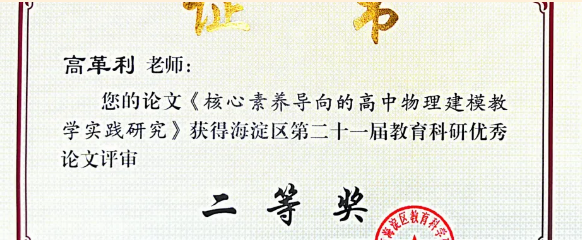 证书
高革利 老师：
您的论文《核心素养导向的高中物理建模教
学实践研究》获得海淀区第二十一届教育科研优秀
论文评审
二等奖
海淀区教育科学